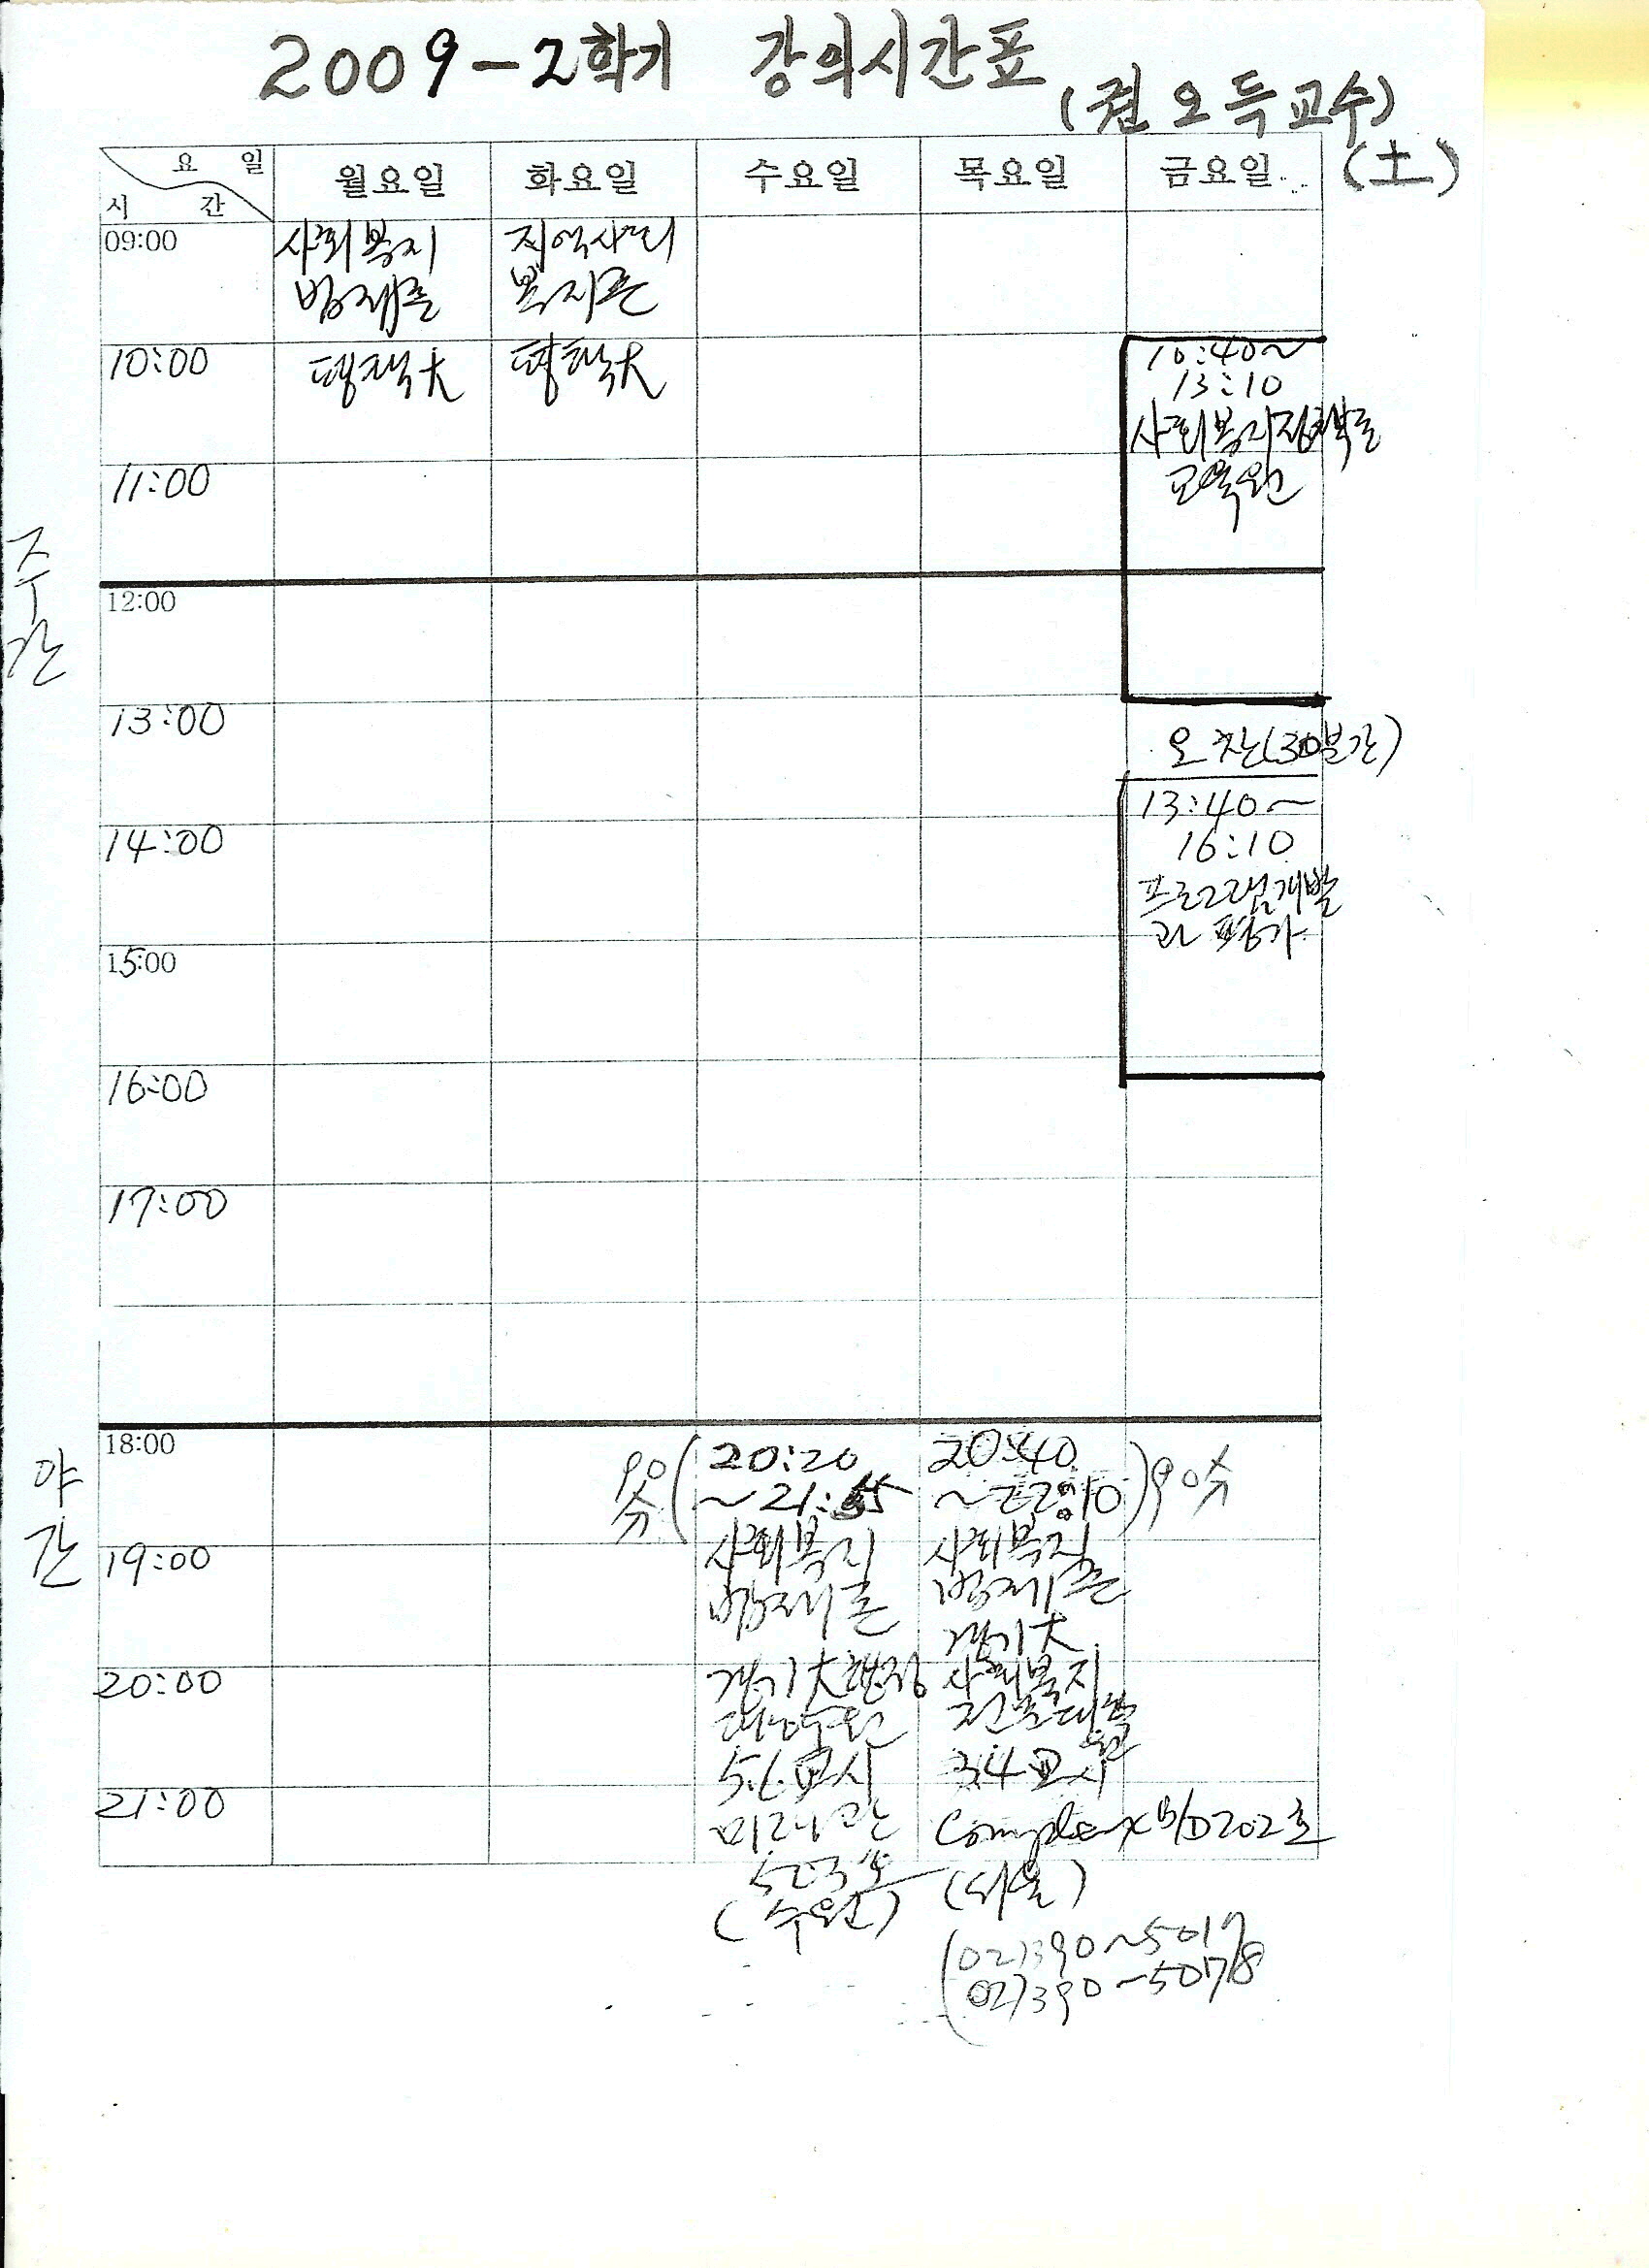 2009-2학기 강의시간표
(권오득교수)
요 일
시 간
월요일 화요일 수요일 목요일 금요일 (土)
주간
09:00
사회복지
법제론
지역사회
복지론
10:00
평택大
평택大
10:40~
13:10
사회복지정책론
교육원
11:00
12:00
13:00
오찬(30분간)
13:40~
16:10
프로그램개발
과 평가
14:00
15:00
16:00
17:00
야간
18:00
90分
20:20
~21:
20:40
~22:10
90分
19:00
사회복지
법제론
사회복지
법제론
경기大
20:00
경기大행정
대학원
5.6.교시
사회복지
전문대학원
3.4교시
21:00
미래관
523호
(수원)
Complex B/D 202호
(서울)
(02)390~5017
02)390-5078